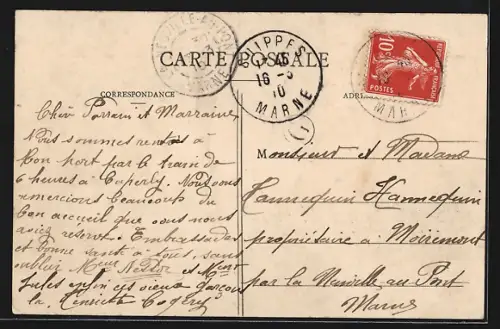 CARTE POSTALE
LA NEUVILLE-AU-PONT
MARNE
SUIPPES
16
10
MARNE
MAR
REPUBLIQUE FRANÇAISE
10c
POSTES
CORRESPONDANCE
Cher Parrain et Marraine
Nous sommes rentrés à
bon port par le train de
6 heures à Cuperly. Nous vous
remercions beaucoup du
bon accueil que vous nous
avez réservé. Embrassades
et bonne santé à tous, sans
oublier Mmes Nestor et
Jules enfin ces vieux garçons
la
Monsieur et Madame
Hannequin Hannequin
propriétaire à Moiremont
par la Neuville au Pont
Marne